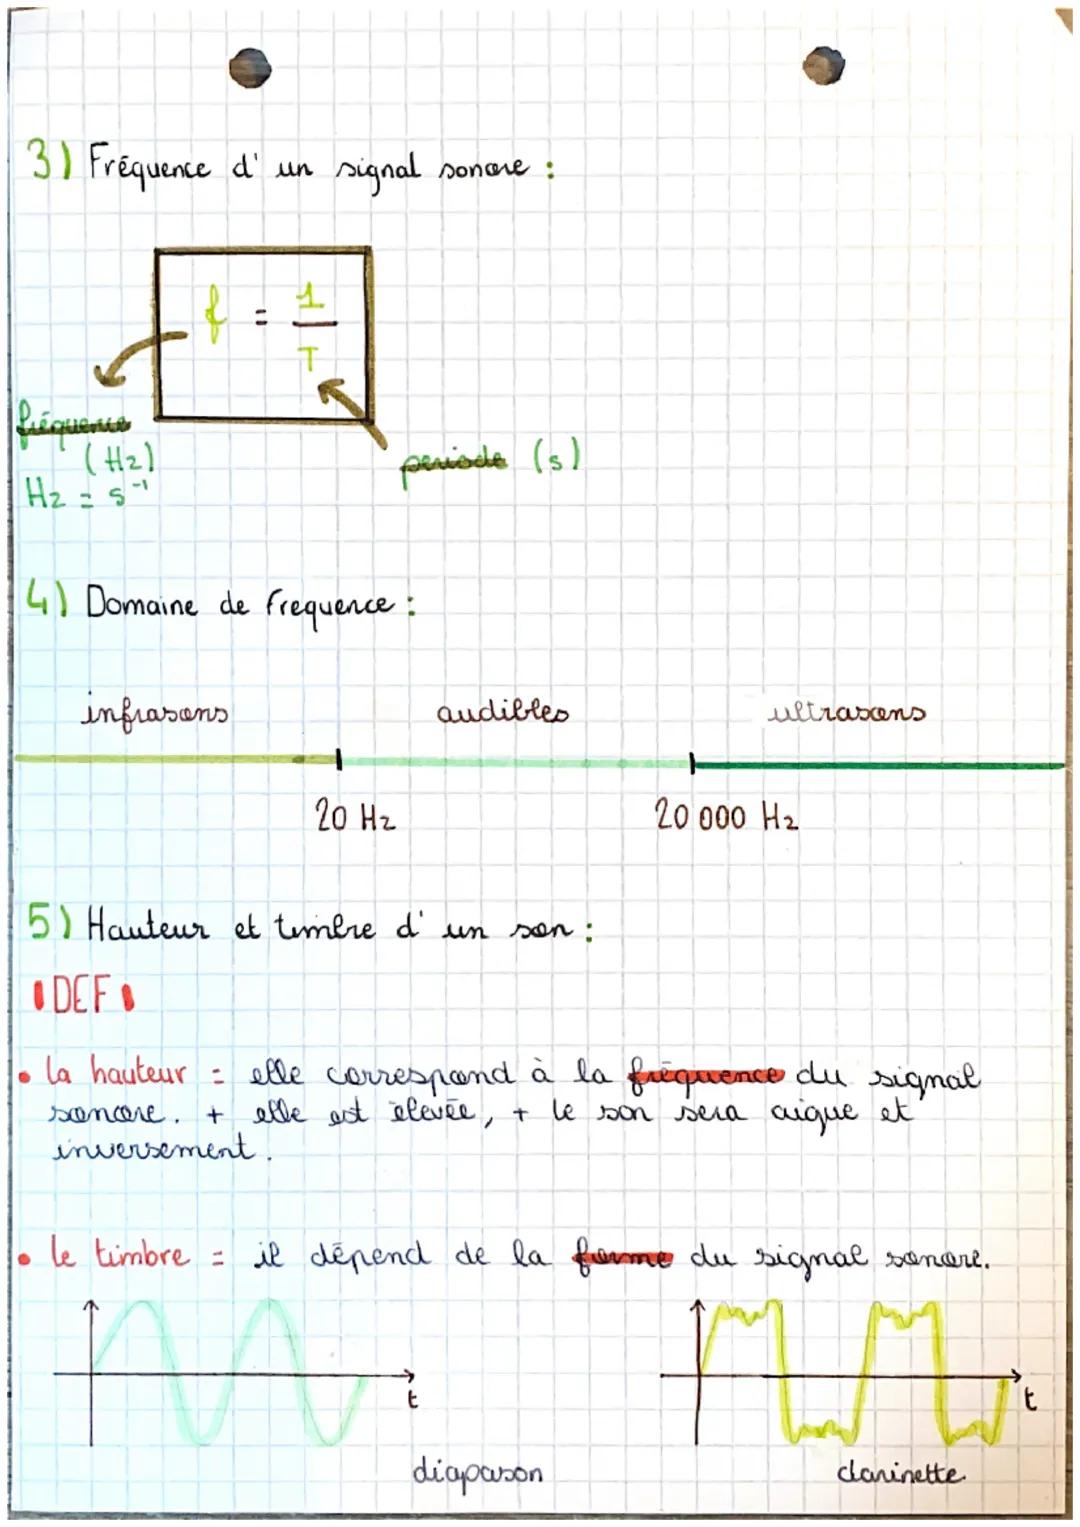 3) Fréquence d'un signal sonore :
f = 1/T
fréquence
(Hz)
Hz = s⁻¹
période (s)
4) Domaine de frequence :
infrasons audibles ultrasons
20 Hz 20 000 Hz
5) Hauteur et timbre d'un son :
DEF
• la hauteur = elle correspond à la fréquence du signal
sonore. + elle est élevée, + le son sera aigue et
inversement.
• le timbre = il dépend de la forme du signal sonore.
t t
diapason clarinette